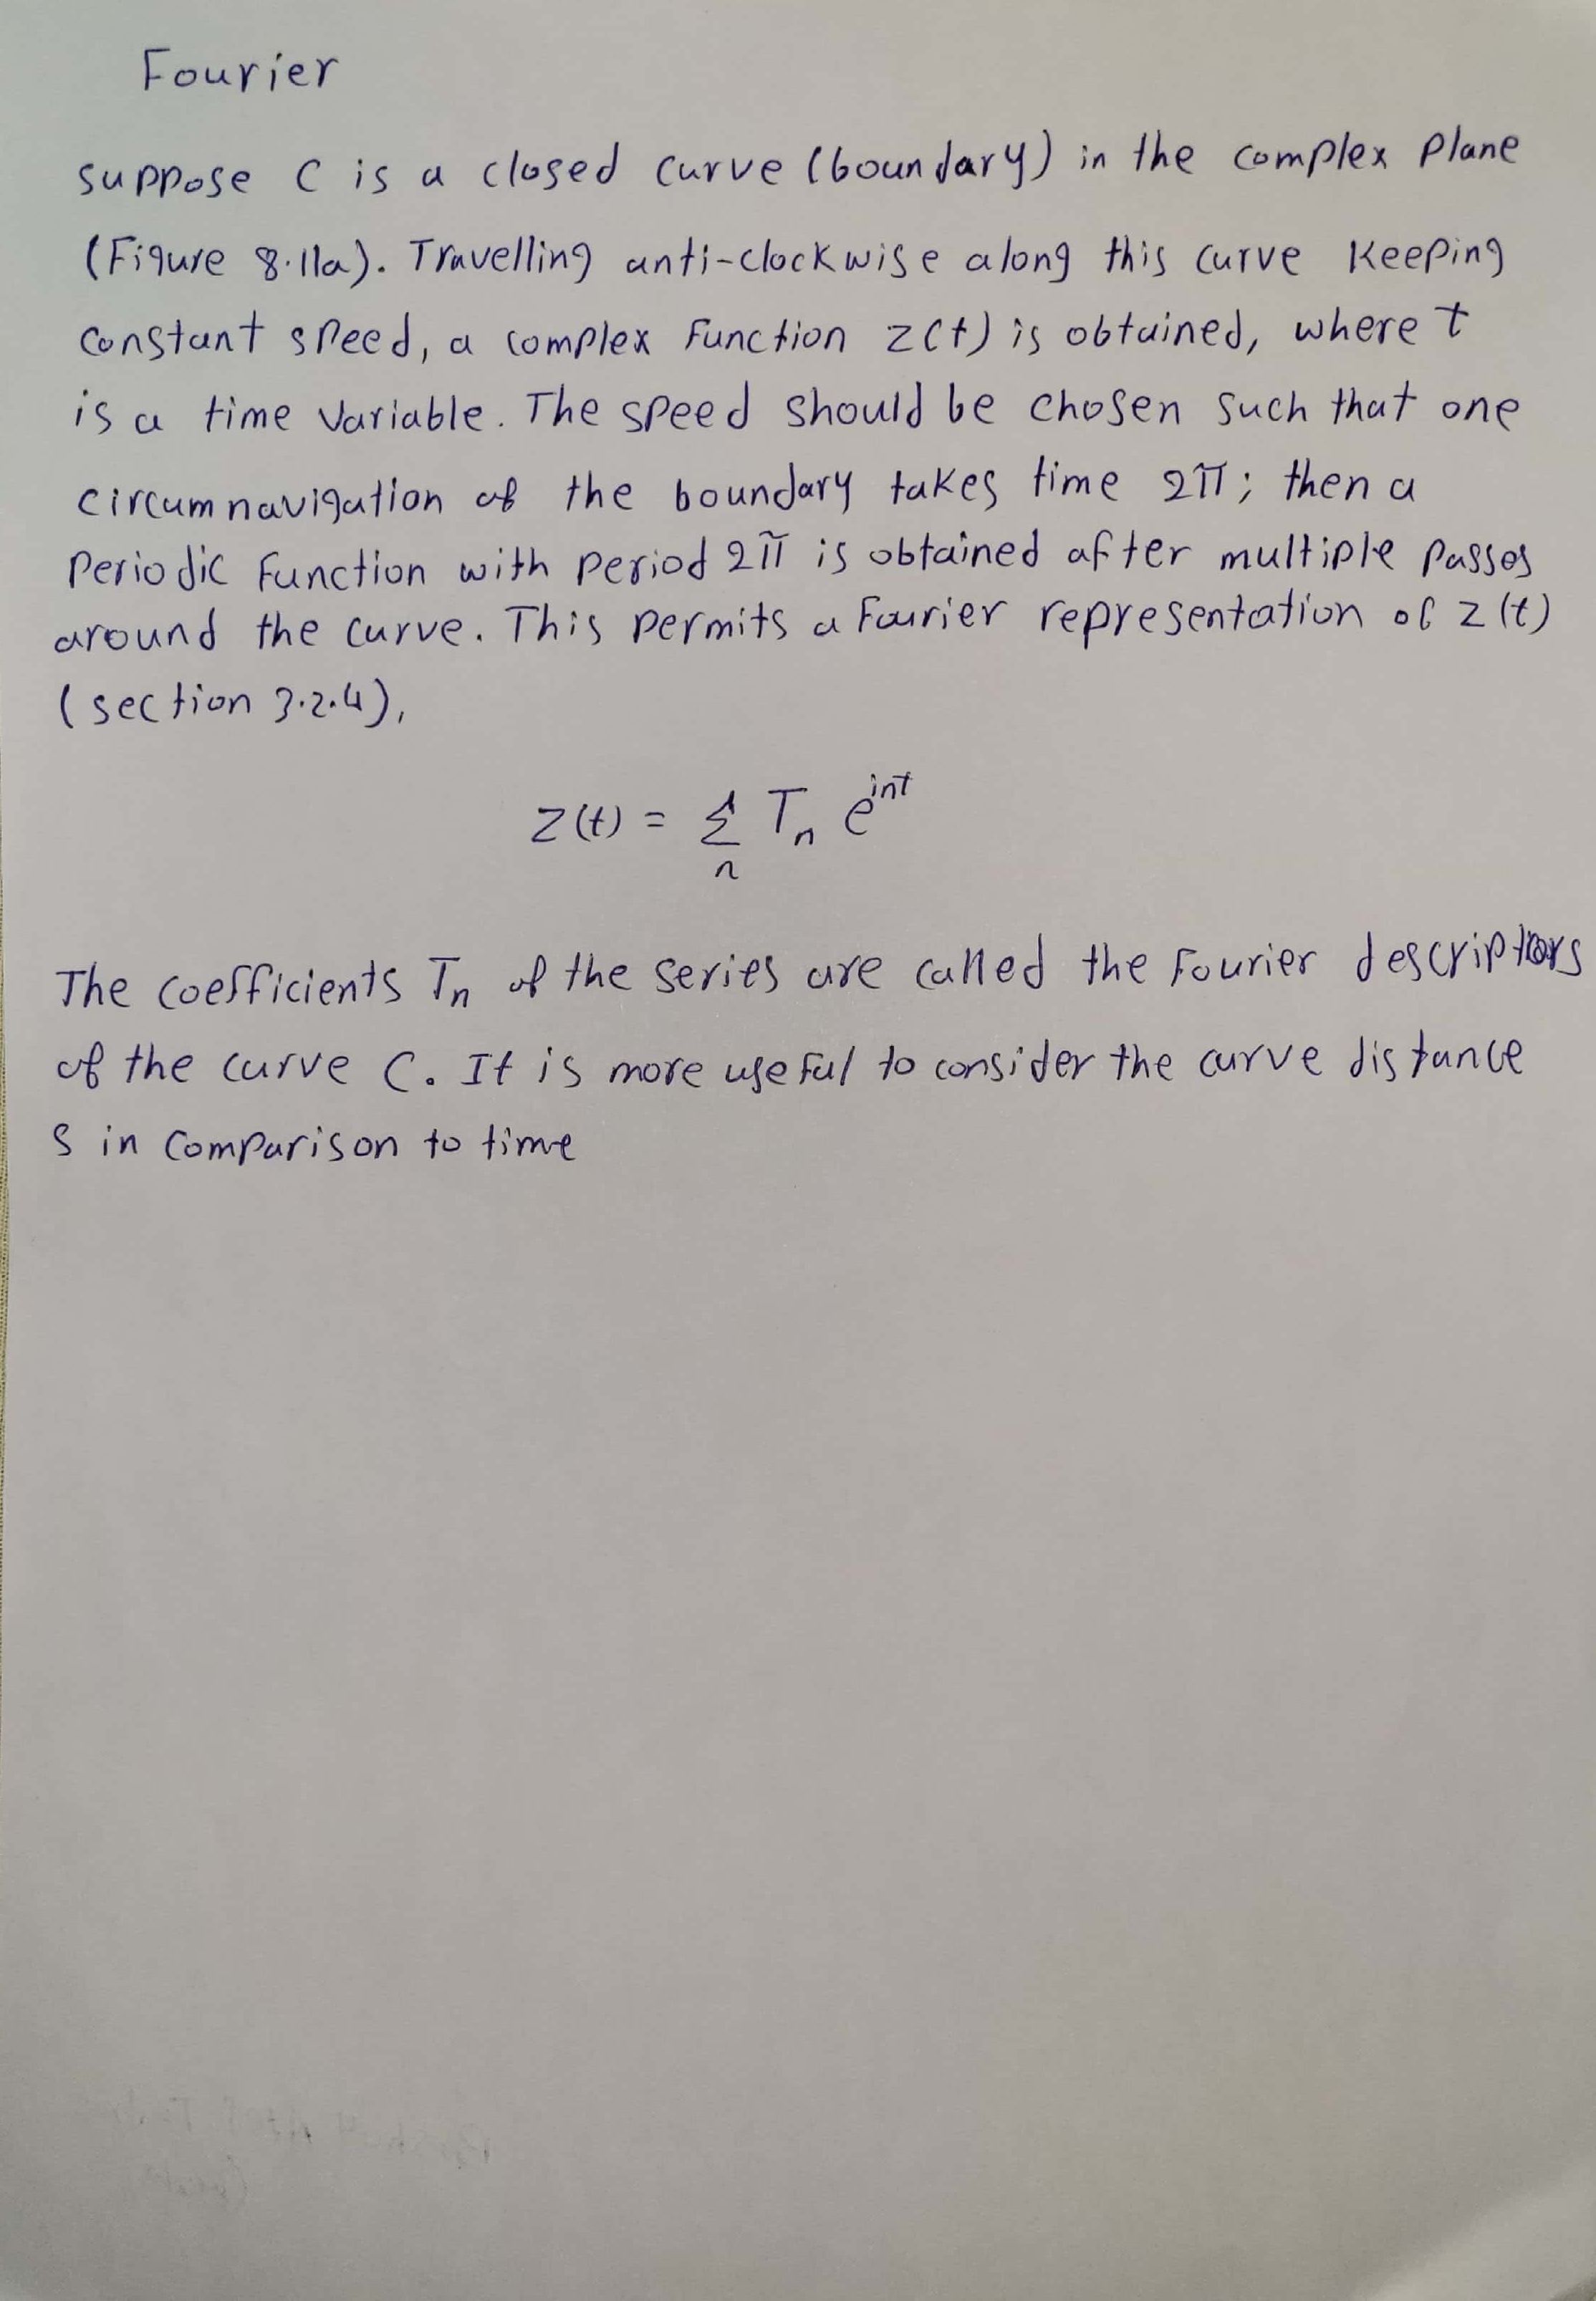 Fourier
suppose C is a closed curve (boundary) in the complex plane
(Figure 8.11a). Travelling anti-clockwise along this curve keeping
constant speed, a complex function z(t) is obtained, where t
is a time variable. The speed should be chosen such that one
circumnavigation of the boundary takes time 2π; then a
periodic function with period 2π is obtained after multiple passes
around the curve. This permits a Fourier representation of z(t)
(section 3.2.4),
z(t) = Σ Tₙ eⁱⁿᵗ
n
The coefficients Tₙ of the series are called the Fourier descriptors
of the curve C. It is more useful to consider the curve distance
s in comparison to time